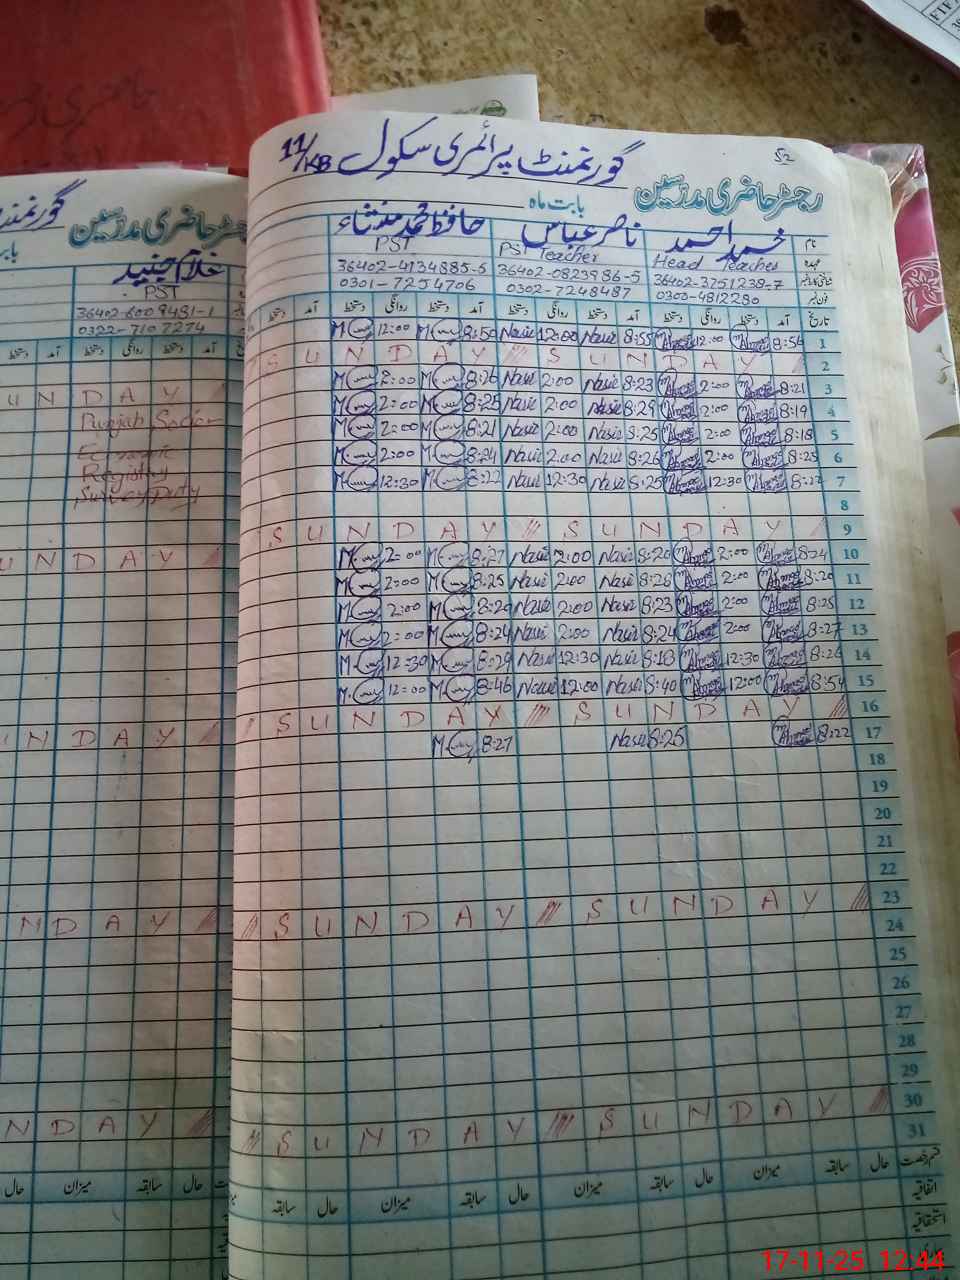 حاضری
گورنمنٹ پرائمری سکول 11/KB
52
رجسٹر حاضری مدرسین
بابت ماہ
نام محمد احمد ناصر عباس حافظ محمد منشاء
عہدہ Head Teacher PST Teacher PST
شناختی کارڈ نمبر 36402-3251238-7 36402-0823986-5 36402-4134885-5
فون نمبر 0303-4812280 0302-7248487 0301-7254706
تاریخ آمد دستخط روانگی دستخط آمد دستخط روانگی دستخط آمد دستخط روانگی دستخط
M 12:00 M 8:50 Nasir 12:00 Nasir 8:55 M Ahmad 12:00 M Ahmad 8:54 1
S U N D A Y S U N D A Y 2
M 2:00 M 8:26 Nasir 2:00 Nasir 8:23 M Ahmad 2:00 M Ahmad 8:21 3
M 2:00 M 8:25 Nasir 2:00 Nasir 8:29 M Ahmad 2:00 M Ahmad 8:19 4
M 2:00 M 8:21 Nasir 2:00 Nasir 8:25 M Ahmad 2:00 M Ahmad 8:18 5
M 2:00 M 8:24 Nasir 2:00 Nasir 8:26 M Ahmad 2:00 M Ahmad 8:25 6
M 12:30 M 8:22 Nasir 12:30 Nasir 8:25 M Ahmad 12:30 M Ahmad 7
8
S U N D A Y S U N D A Y 9
M 2:00 M 8:27 Nasir 2:00 Nasir 8:20 M Ahmad 2:00 M Ahmad 8:24 10
M 2:00 M 8:25 Nasir 2:00 Nasir 8:28 M Ahmad 2:00 M Ahmad 8:20 11
M 2:00 M 8:20 Nasir 2:00 Nasir 8:23 M Ahmad 2:00 M Ahmad 8:25 12
M 2:00 M 8:24 Nasir 2:00 Nasir 8:24 M Ahmad 2:00 M Ahmad 8:27 13
M 12:30 M 8:29 Nasir 12:30 Nasir 8:18 M Ahmad 12:30 M Ahmad 8:26 14
M 12:00 M 8:46 Nasir 12:00 Nasir 8:40 M Ahmad 12:00 M Ahmad 8:54 15
S U N D A Y S U N D A Y 16
M 8:27 Nasir 8:25 M Ahmad 8:22 17
18
19
20
21
22
S U N D A Y S U N D A Y 23
24
25
26
27
28
29
S U N D A Y S U N D A Y 30
31
قسم رخصت حال سابقہ میزان حال سابقہ میزان حال سابقہ
اتفاقیہ
استحقاقیہ
گورنمنٹ
رجسٹر حاضری مدرسین
غلام جنید
PST
36402-6009481-1
0322-7107274
آمد دستخط روانگی دستخط آمد دستخط
U N D A Y
Punjab Socio
Economic
Registry
Survey Duty
U N D A Y
U N D A Y
N D A Y
N D A Y
حال سابقہ میزان حال
17-11-25 12:44